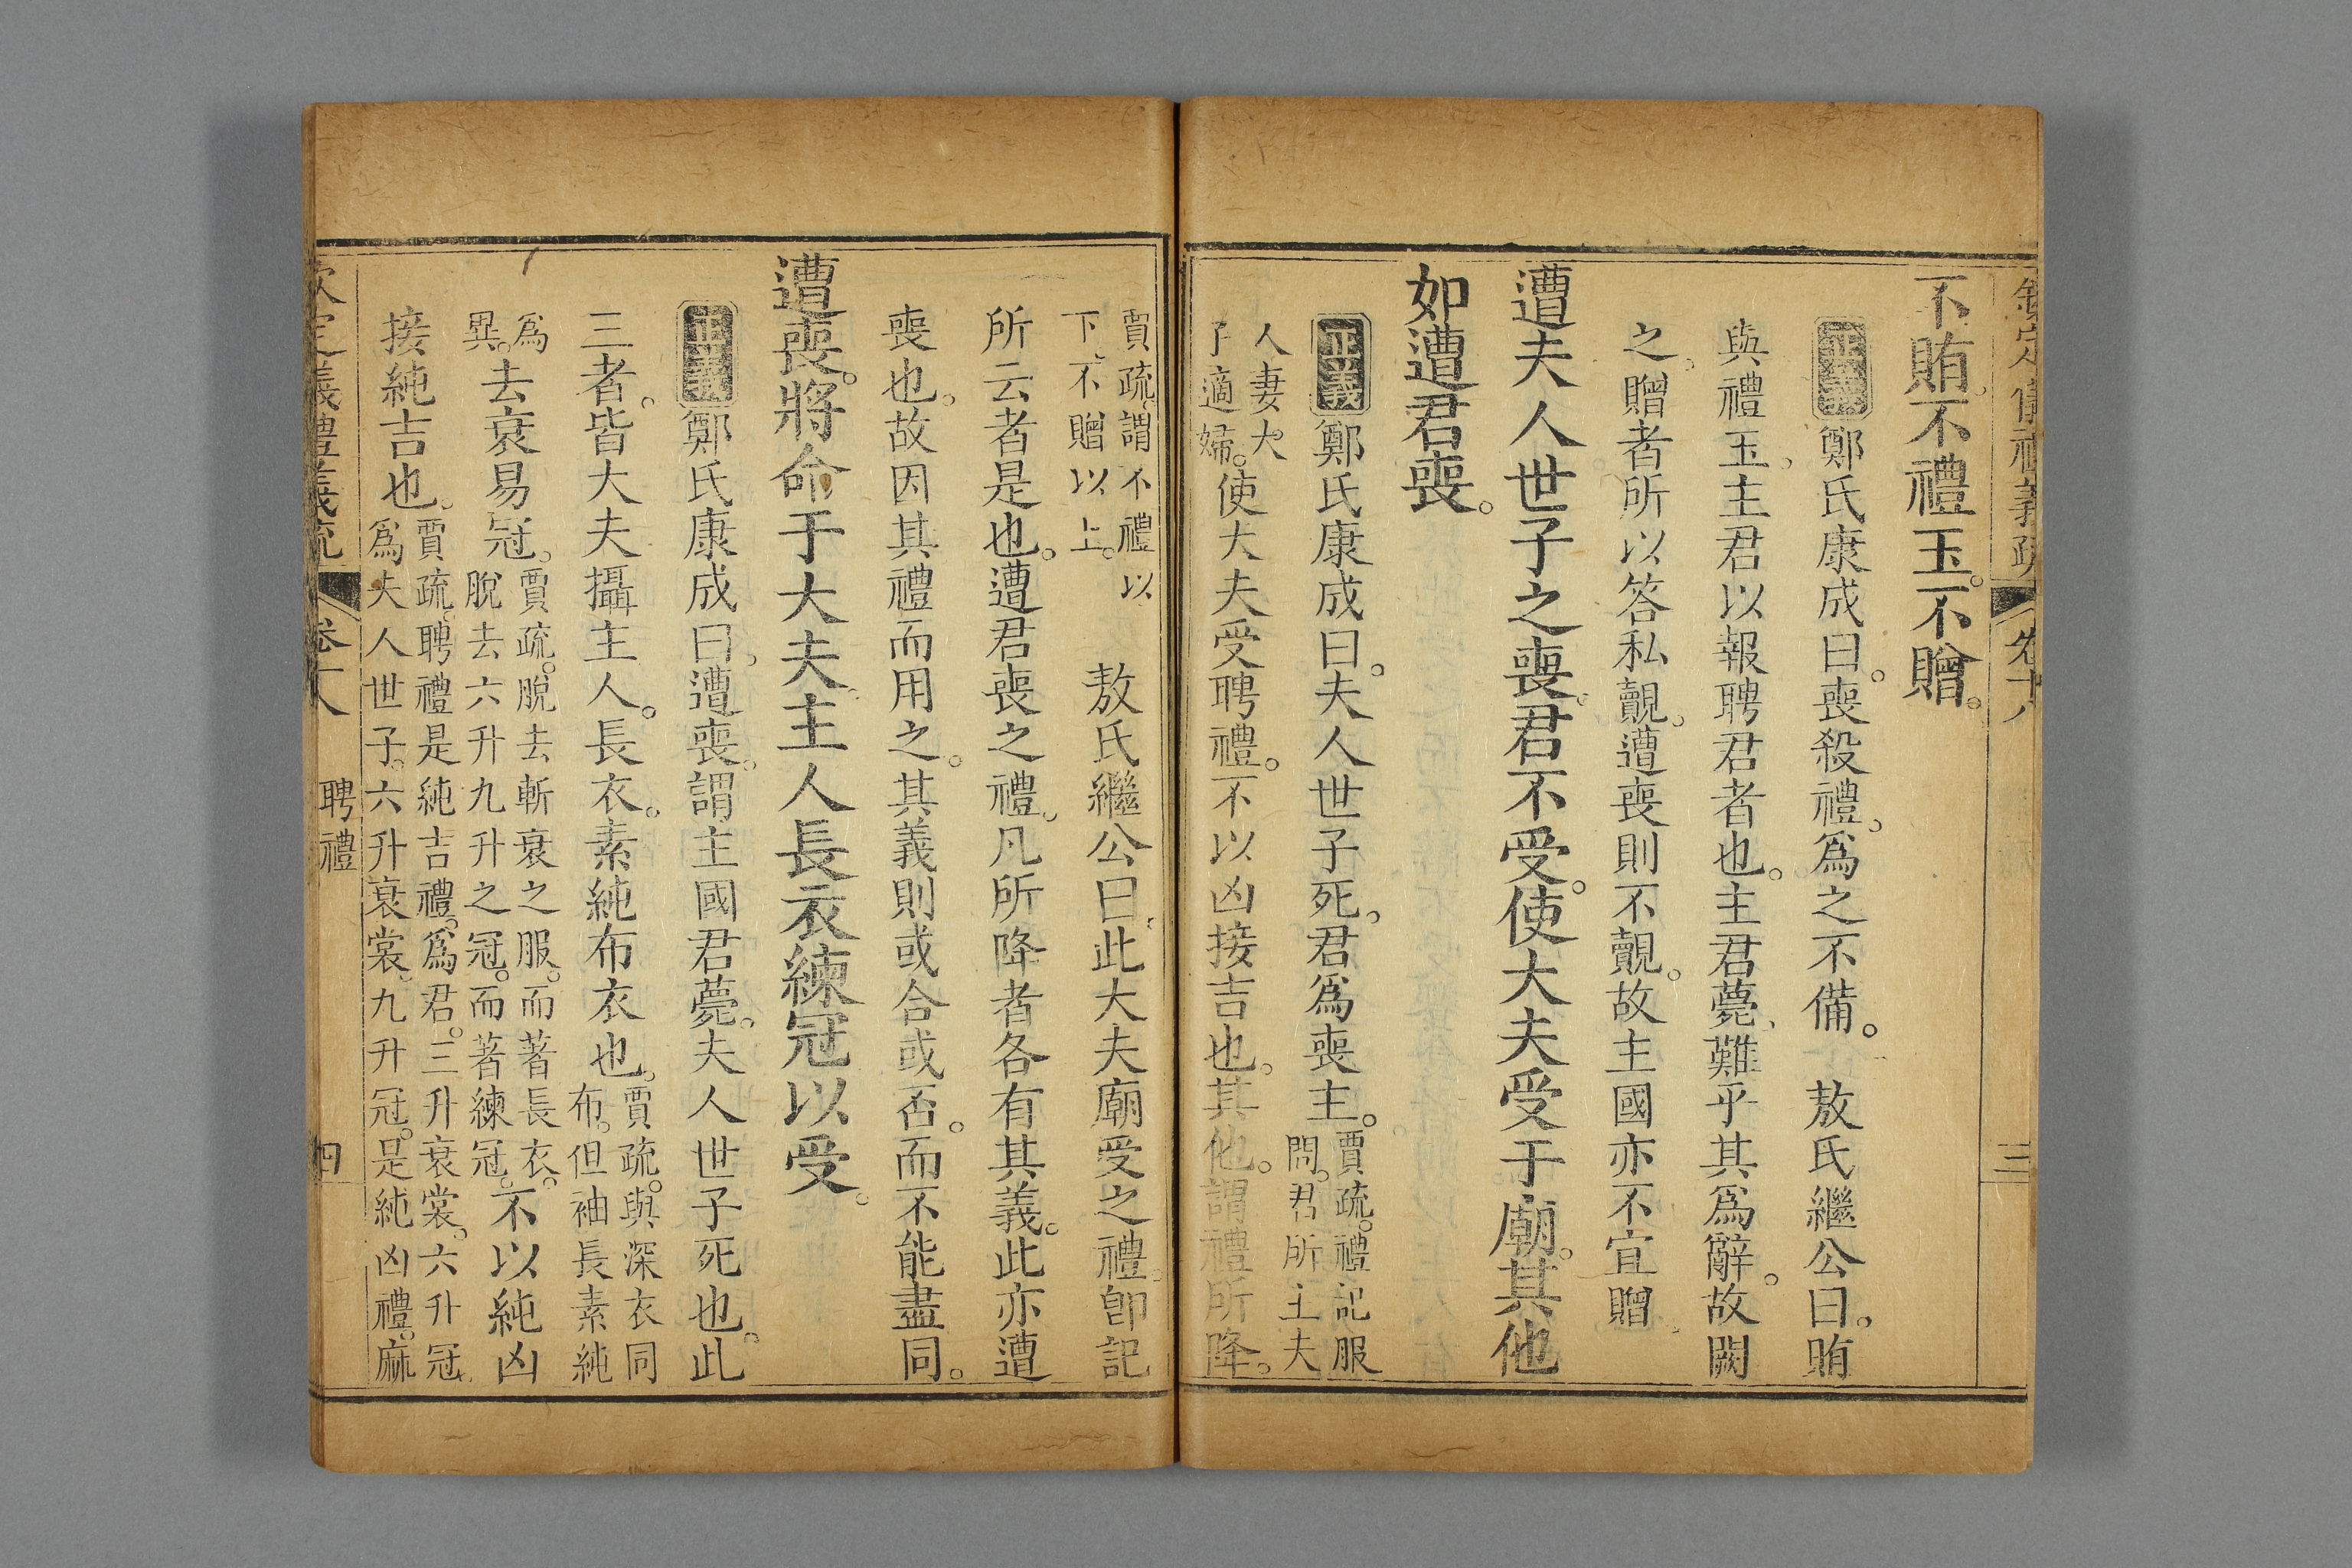 欽定儀禮義疏 卷十八 三
不賄。不禮玉。不贈。
正義 鄭氏康成曰。喪殺禮。爲之不備。 敖氏繼公曰。賄
與禮玉。主君以報聘君者也。主君薨。難乎其爲辭。故闕
之。贈者所以答私覿。遭喪則不覿。故主國亦不宜贈
遭夫人世子之喪。君不受。使大夫受于廟。其他
如遭君喪。
正義 鄭氏康成曰。夫人世子死。君爲喪主。賈疏。禮記服
問。君所主夫
人妻大
子適婦。使大夫受聘禮。不以凶接吉也。其他。謂禮所降。
賈疏。謂不禮以
下。不贈以上。 敖氏繼公曰。此大夫廟受之禮。卽記
所云者是也。遭君喪之禮。凡所降者各有其義。此亦遭
喪也。故因其禮而用之。其義則或合或否。而不能盡同。
遭喪。將命于大夫。主人長衣練冠以受。
正義 鄭氏康成曰。遭喪。謂主國君薨。夫人世子死也。此
三者。皆大夫攝主人。長衣。素純布衣也。賈疏。與深衣同
布。但袖長素純
爲
異。去衰易冠。賈疏。脫去斬衰之服。而著長衣。
脫去六升九升之冠。而著練冠。不以純凶
接純吉也。賈疏。聘禮是純吉禮。爲君。三升衰裳。六升冠。
爲夫人世子。六升衰裳。九升冠。是純凶禮。麻
欽定義禮義疏 卷十八 聘禮 四